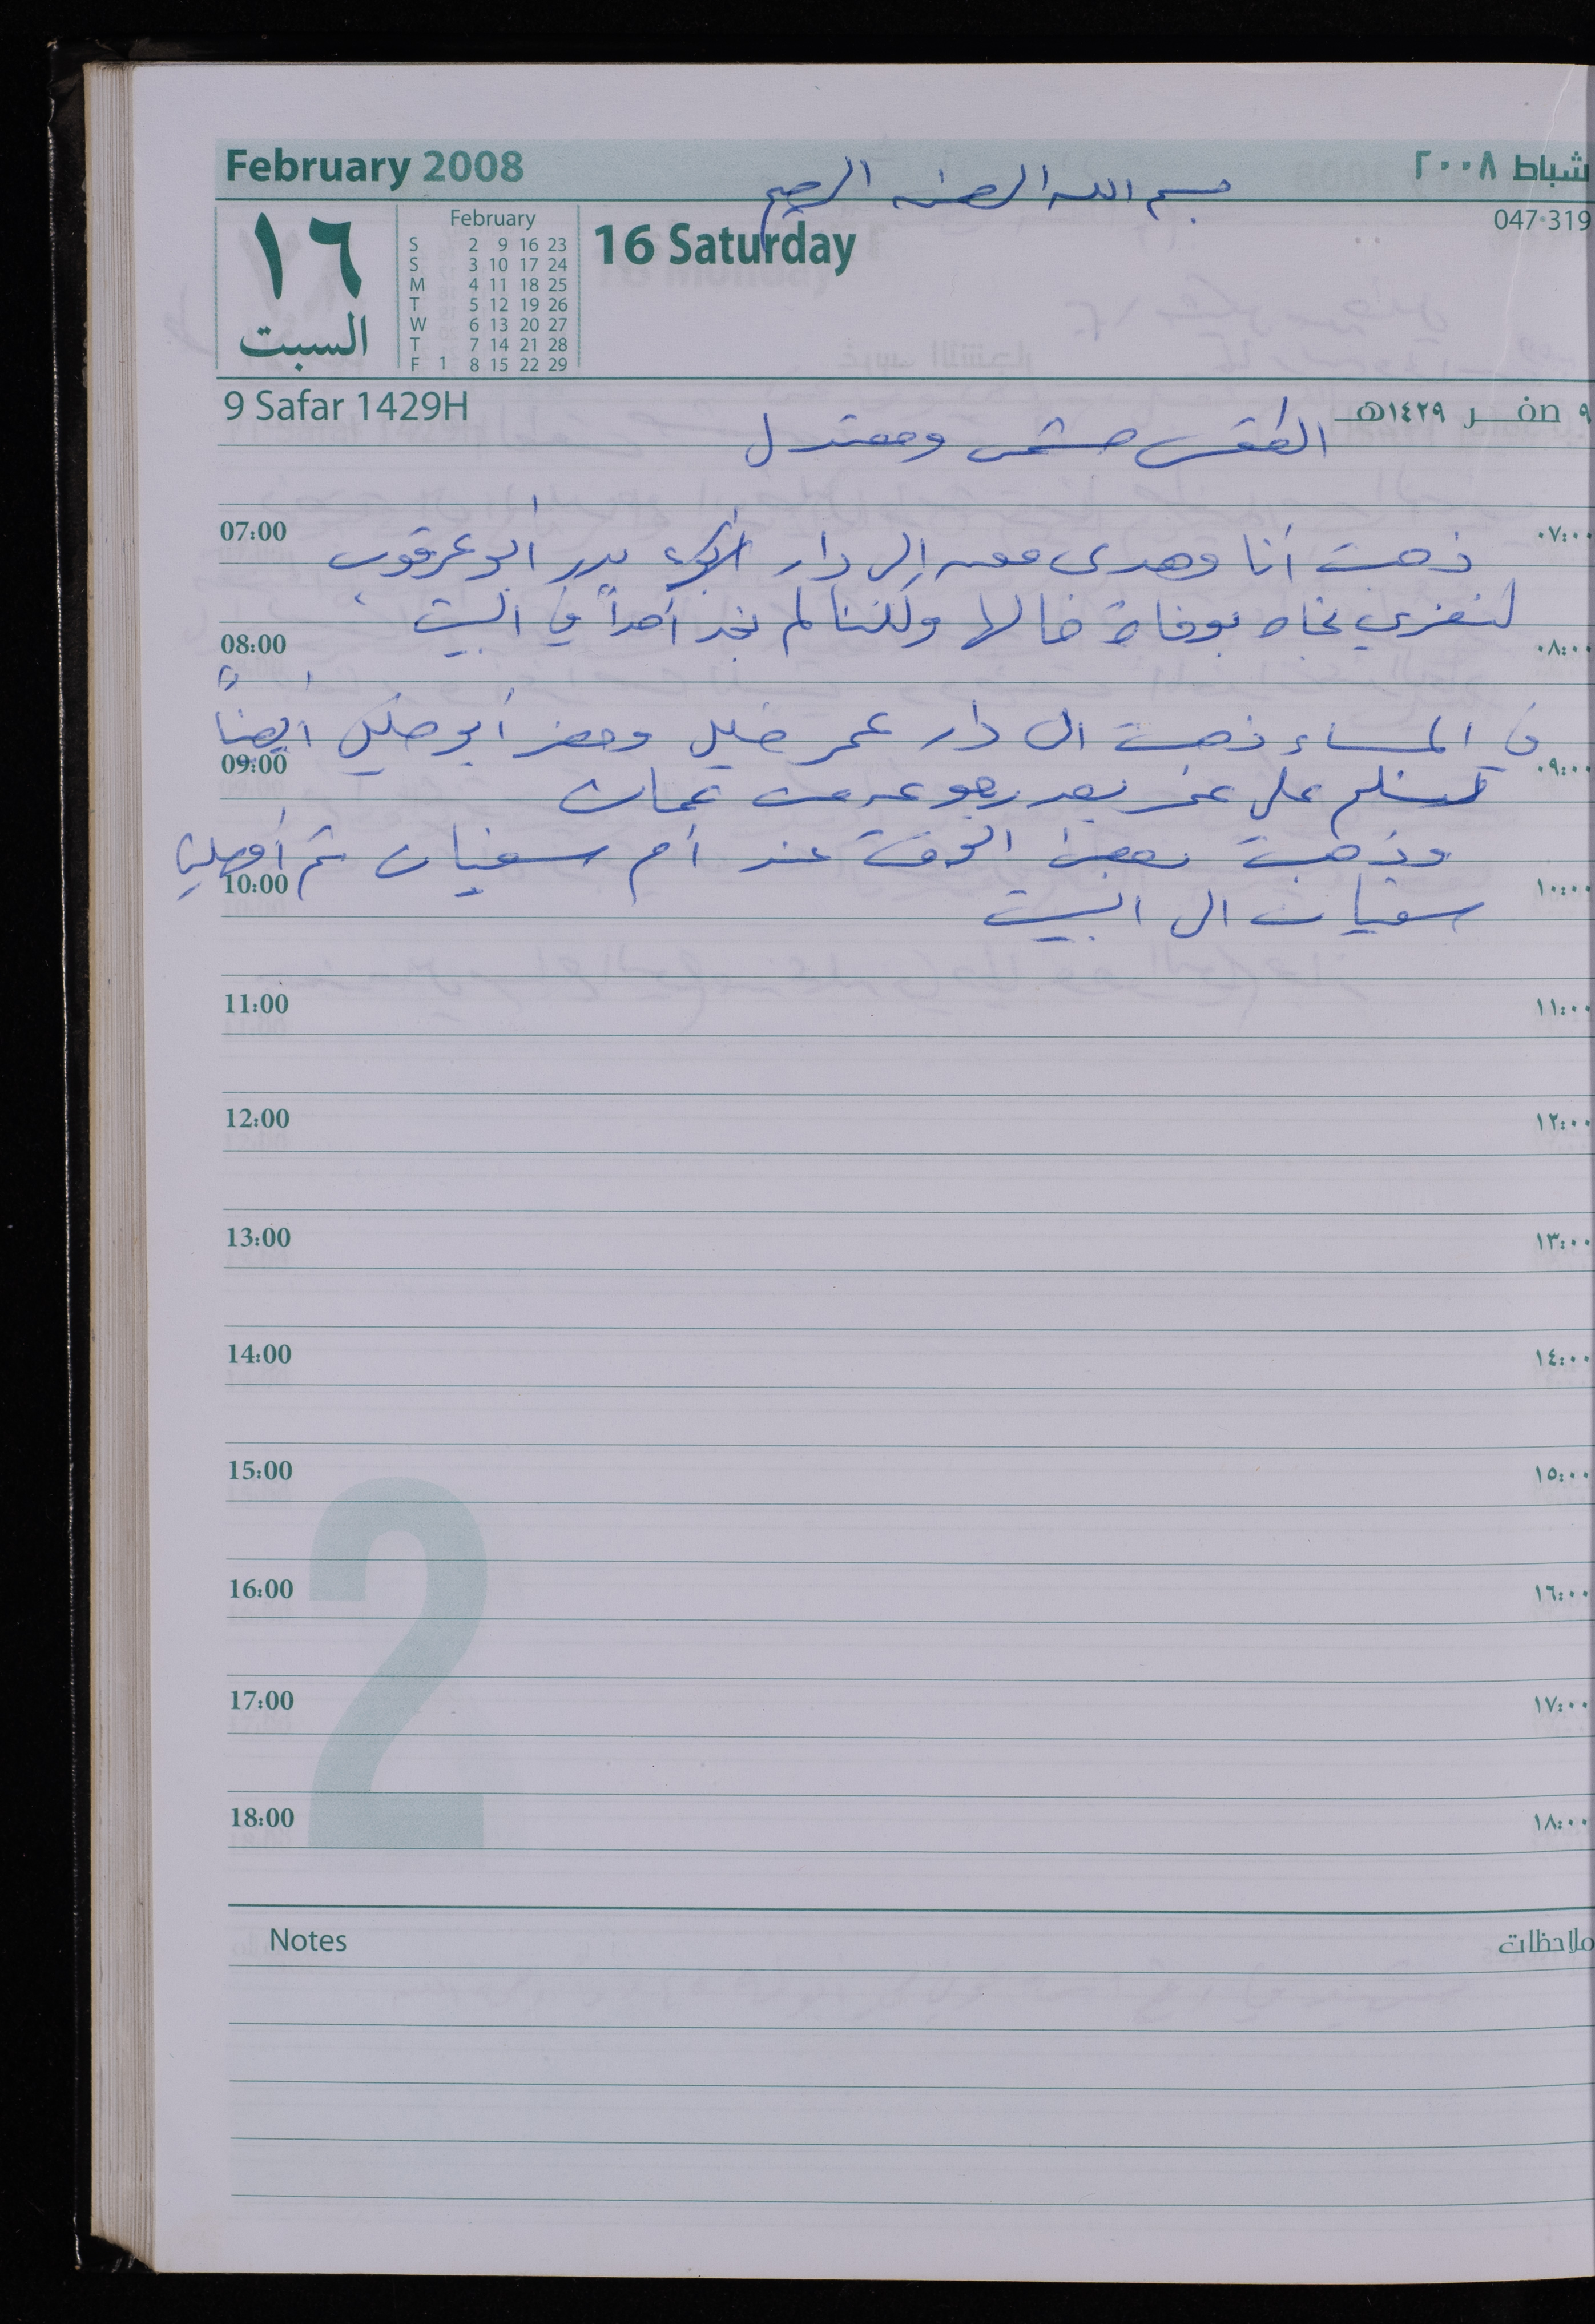 February 2008
شباط ٢٠٠٨
بسم الله الرحمن الرحيم
047·319
١٦
السبت
February
S 2 9 16 23
S 3 10 17 24
M 4 11 18 25
T 5 12 19 26
W 6 13 20 27
T 7 14 21 28
F 1 8 15 22 29
16 Saturday
9 Safar 1429H
٩ صفر ١٤٢٩هـ
الطقس مشمس ومعتدل
07:00 ٠٧:٠٠
ذهبت أنا وهدى إلى دار بدر أبو عرقوب
لنعزي نجاه بوفاة خالها ولكننا لم نجد أحداً في البيت
08:00 ٠٨:٠٠
في المساء ذهبت الى دار عمر خليل وحضر أبو خليل ايضاً
09:00 ٠٩:٠٠
لنسلم على عمر بعد رجوعه من عمان
وذهبت بعض الوقت عند أم سفيان ثم أوصلني
10:00 ١٠:٠٠
سفيان الى البيت
11:00 ١١:٠٠
12:00 ١٢:٠٠
13:00 ١٣:٠٠
14:00 ١٤:٠٠
15:00 ١٥:٠٠
16:00 ١٦:٠٠
17:00 ١٧:٠٠
18:00 ١٨:٠٠
2
Notes ملاحظات